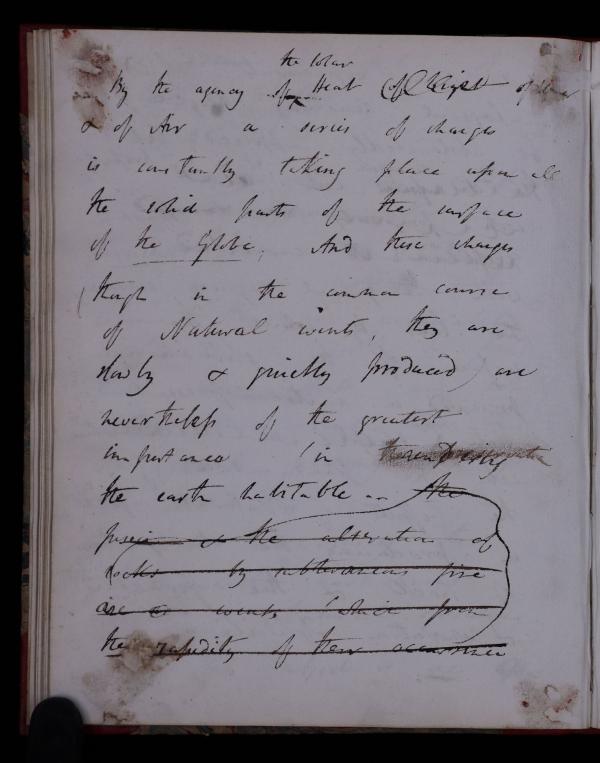 the Solar
By the agency of Heat (of Light of
& of Air a series of changes
is constantly taking place upon all
the solid parts of the surface
of the Globe; And these changes
(though in the common course
of Natural events, they are
slowly & quietly produced) are
nevertheless of the greatest
importance in rendering
the earth habitable — the
fusion & the alteration of
rocks by subterraneous fire
are events which from
the rapidity of their occurrence